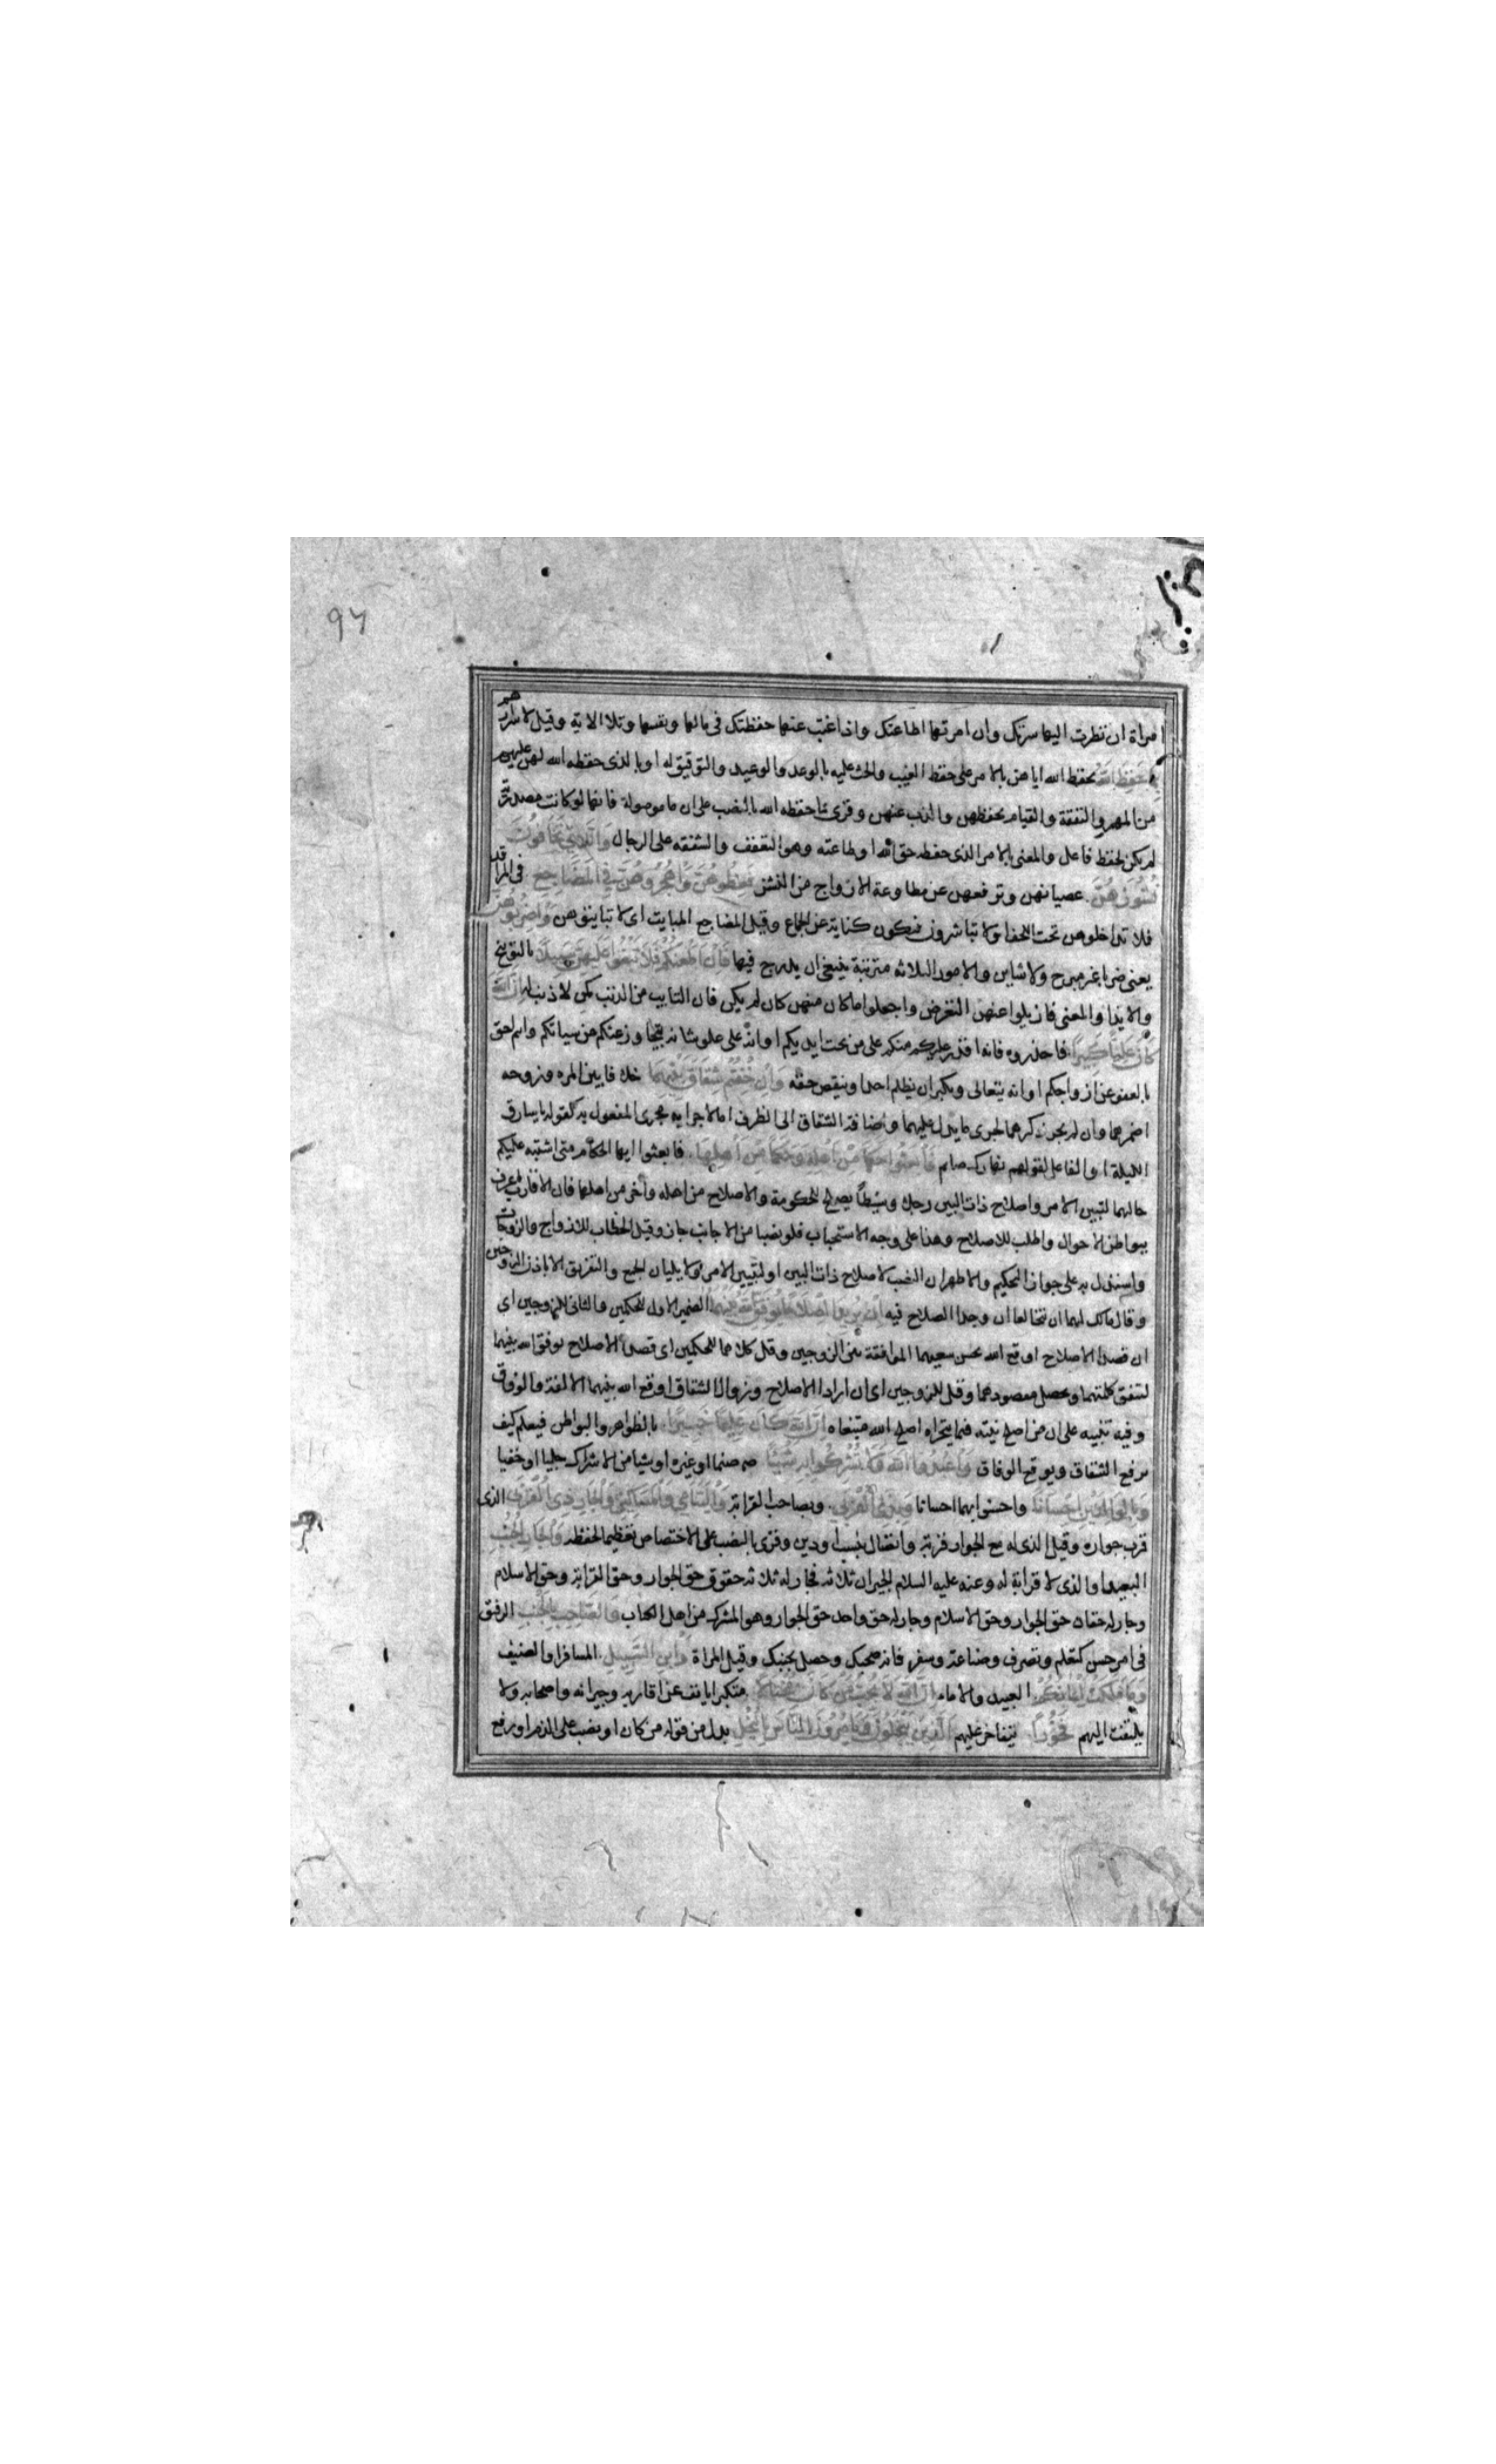 ٩٦
امراة ان نظرت اليها سرتك وان امرتها اطاعتك واذا غبت عنها حفظتك فى مالها ونفسها وتلا الاية وقيل لاسرارهم
بما حفظ الله بحفظ الله اياهن بالامر على حفظ الغيب والحث عليه بالوعد والوعيد والتوفيق له او بالذى حفظه الله لهن عليهم
من المهر والنفقة والقيام بحفظهن والذب عنهن وقرئ بما حفظه الله بالنصب على ان ما موصولة فانها لو كانت مصدرية
لم يكن لحفظ فاعل والمعنى بالامر الذى حفظ حق الله او طاعته وهو التعفف والشفقه على الرجال واللاتي تخافون
نشوزهن عصيانهن وترفعهن عن مطاوعة الازواج من النشز فعظوهن واهجروهن في المضاجع فى المراقد
فلا تداخلوهن تحت اللحف اولا تباشروهن فيكون كناية عن الجماع وقيل المضاجع المبايت اى لا تبايتوهن واضربوهن
يعنى ضربا غير مبرح ولا شاين والامور الثلاثه مترتبة ينبغى ان يدرج فيها فان اطعنكم فلا تبغوا عليهن سبيلا بالتوبيخ
والايذا والمعنى فازيلوا عنهن التعرض واجعلوا ما كان منهن كان لم يكن فان التايب من الذنب كمن لا ذنب له ان الله
كان عليا كبيرا فاحذروه فانه اقدر عليكم منكم على من تحت ايديكم او انه على علو شانه يتجاوز عنكم من سياتكم وانتم احق
بالعفو عن ازواجكم او انه يتعالى ويكبر ان يظلم احدا وينقص حقه وان خفتم شقاق بينهما خلافا بين المره وزوجه
اضمرهما وان لم يجر ذكرهما لجرى ما يدل عليهما واضافة الشقاق الى الظرف اما لاجرايه مجرى المفعول به كقوله يا سارق
الليلة او الفاعل لقولهم نهارك صايم فابعثوا حكما من اهله وحكما من اهلها فابعثوا ايها الحكام متى اشتبه عليكم
حالهما لتبيين الامر واصلاح ذات البين رجلا وسطا يصلح للحكومة والاصلاح من اهله واخر من اهلها فان الاقارب اعرف
ببواطن الاحوال واطلب للاصلاح وهذا على وجه الاستحباب فلو نصبا من الاجانب جاز وقيل الخطاب للازواج والزوجات
واستدل به على جواز التحكيم والاظهر ان النصب لاصلاح ذات البين او لتبيين الامر ولا يليان الجمع والتفريق الا باذن الزوجين
وقال مالك لهما ان تخالعا ان وجدا الصلاح فيه ان يريدا اصلاحا يوفق الله بينهما الضمير الاول للحكمين والثانى للزوجين اى
ان قصدا الاصلاح اوقع الله بحسن سعيهما الموافقة بين الزوجين وقيل كلاهما للحكمين اى قصدا الاصلاح يوفق الله بينهما
لتتفق كلمتهما ويحصل مقصودهما وقيل للزوجين اى ان ارادا الاصلاح وزوال الشقاق اوقع الله بينهما الالفة والوفاق
وفيه تنبيه على ان من اصلح نيته فيما يتحراه اصلح الله مبتغاه ان الله كان عليما خبيرا بالظواهر والبواطن فيعلم كيف
يرفع الشقاق ويوقع الوفاق واعبدوا الله ولا تشركوا به شيئا صنما او غيره او شيا من الاشراك جليا او خفيا
وبالوالدين احسانا واحسنوا بهما احسانا وبذي القربى وبصاحب القرابة واليتامى والمساكين والجار ذي القربى الذى
قرب جواره وقيل الذى له مع الجوار قرب واتصال بنسب او دين وقرئ بالنصب على الاختصاص تعظيما لحفظه والجار الجنب
البعيد او الذى لا قرابة له وعنه عليه السلام الجيران ثلاثه فجار له ثلاثه حقوق حق الجوار وحق القرابة وحق الاسلام
وجار له حقان حق الجوار وحق الاسلام وجار له حق واحد حق الجوار وهو المشرك من اهل الكتاب والصاحب بالجنب الرفيق
فى امر حسن كتعلم وتصرف وصناعة وسفر فانه صحبك وحصل بجنبك وقيل المراة وابن السبيل المسافر او الضيف
وما ملكت ايمانكم العبيد والاماء ان الله لا يحب من كان مختالا متكبرا يانف عن اقاربه وجيرانه واصحابه ولا
يلتفت اليهم فخورا يتفاخر عليهم الذين يبخلون ويامرون الناس بالبخل بدل من قوله من كان او نصب على الذم او رفع